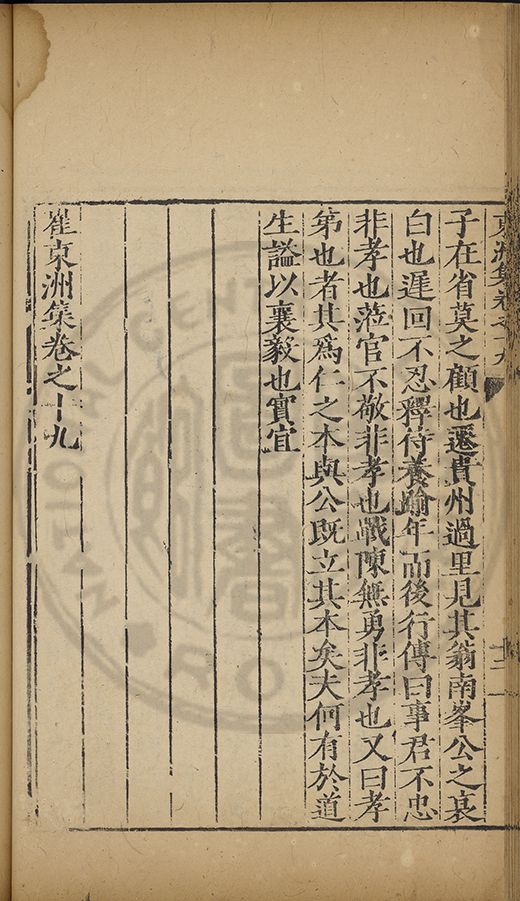 東洲集卷之十九
十二
子在省莫之顧也遷貴州過里見其翁南峯公之衰
白也遲回不忍釋侍養踰年而後行傳曰事君不忠
非孝也蒞官不敬非孝也戰陳無勇非孝也又曰孝
弟也者其為仁之本與公既立其本矣夫何有於道
生謚以襄毅也實宜
崔東洲集卷之十九